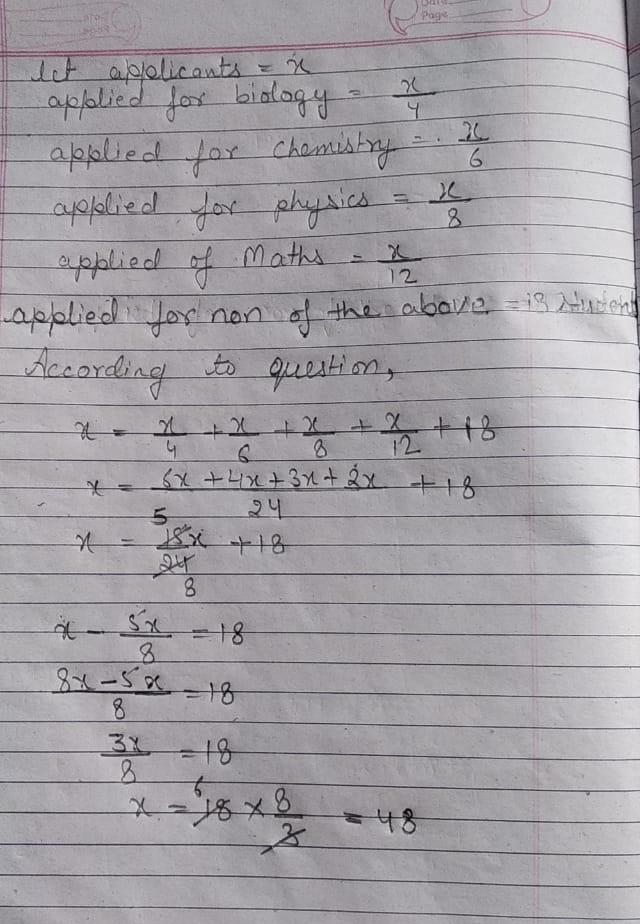 Date
Page
let applicants = x
applied for biology = x/4
applied for chemistry = x/6
applied for physics = x/8
applied of Maths = x/12
applied for non of the above = 18 student
According to question,
x = x/4 + x/6 + x/8 + x/12 + 18
x = (6x + 4x + 3x + 2x)/24 + 18
x = 15x/24 + 18
5
8
x - 5x/8 = 18
(8x - 5x)/8 = 18
3x/8 = 18
x = 18 × 8/3 = 48
6